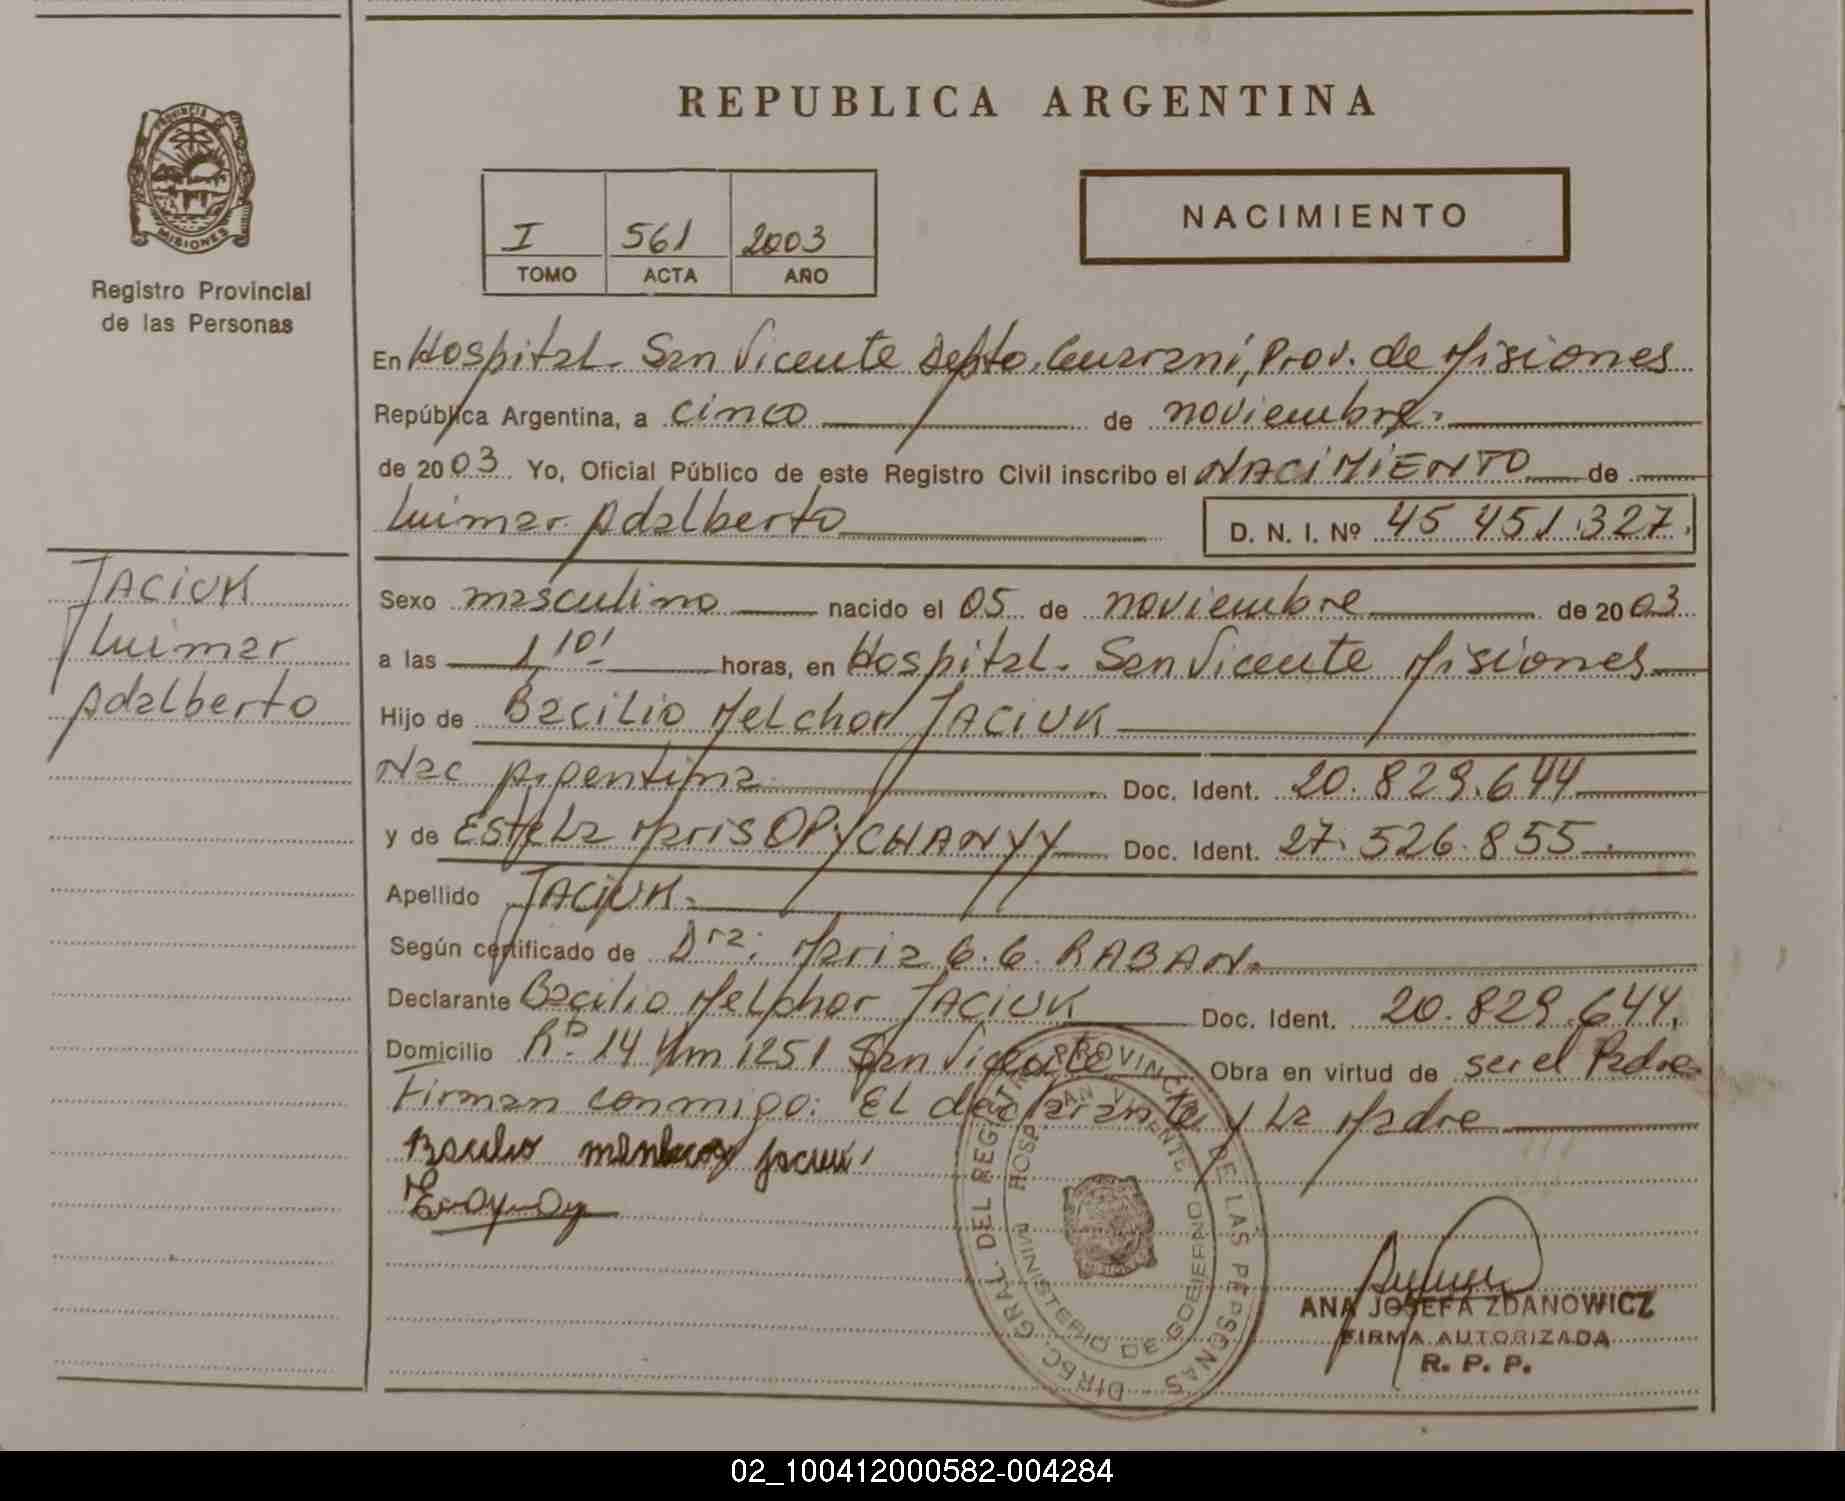 REPUBLICA ARGENTINA
PROVINCIA DE
MISIONES
Registro Provincial
de las Personas
I 561 2003
TOMO ACTA AÑO
NACIMIENTO
En Hospital. San Vicente Depto. Guaraní, Prov. de Misiones
República Argentina, a cinco de noviembre.
de 2003 Yo, Oficial Público de este Registro Civil inscribo el NACIMIENTO de
Luimar Adalberto D. N. I. Nº 45 451.327.
JACIUK
Luimar
Adalberto
Sexo masculino nacido el 05 de noviembre de 2003
a las 1,10' horas, en Hospital. San Vicente Misiones
Hijo de Bacilio Melchor JACIUK
Nac Argentina Doc. Ident. 20.829.644
y de Estela Maris OPYCHANYY Doc. Ident. 27.526.855.
Apellido JACIUK.
Según certificado de Dra: Maria G.G. RABAN.
Declarante Bacilio Melchor JACIUK Doc. Ident. 20.829.644.
Domicilio Rta. 14 Km 1251 San Vicente Obra en virtud de ser el Padre
Firman conmigo: El declarante y La Madre
DIREC. GRAL. DEL REGISTRO PROVINCIAL DE LAS PERSONAS
HOSP. SAN VICENTE
MINISTERIO DE GOBIERNO
ANA JOSEFA ZDANOWICZ
FIRMA AUTORIZADA
R. P. P.
02_100412000582-004284